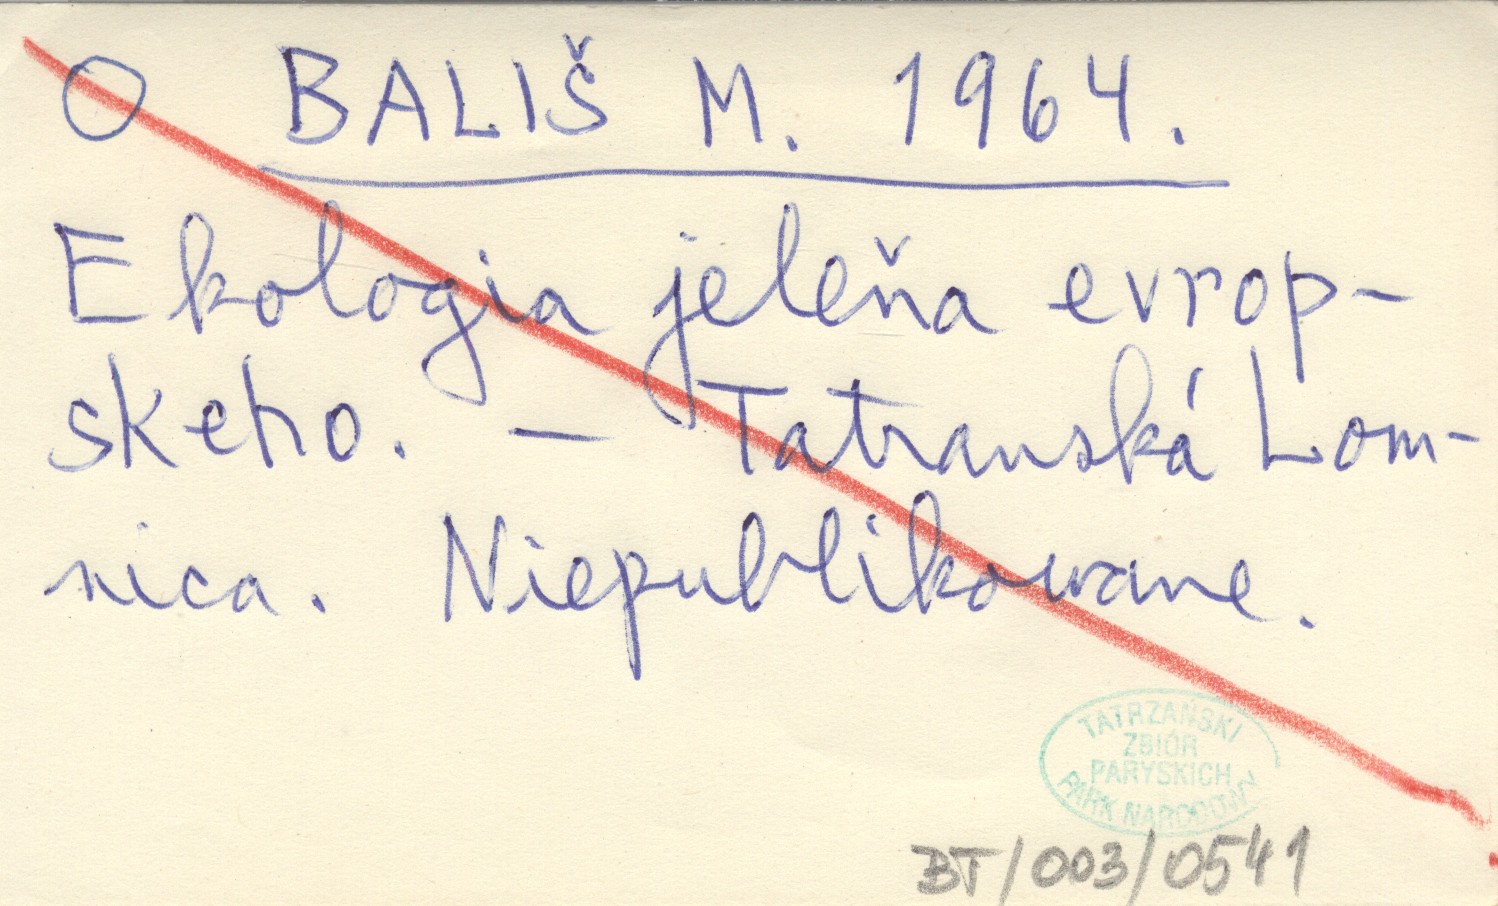 O BALIŠ M. 1964.
Ekologia jeleňa evrop-
skeho. — Tatranská Lom-
nica. Niepublikowane.
TATRZAŃSKI
ZBIÓR
PARYSKICH
PARK NARODOWY
BT/003/0541